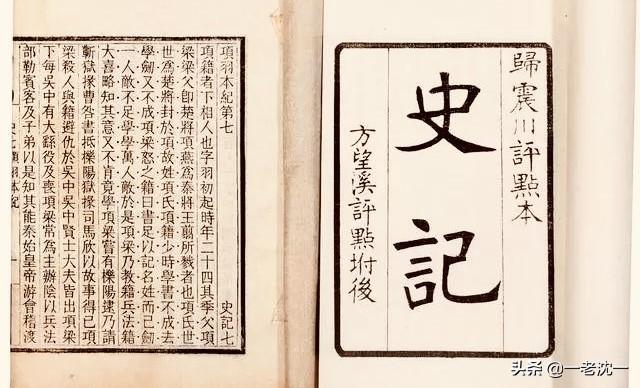 歸震川評點本
史記
方望溪評點坿後
項羽本紀第七
史記七
項籍者下相人也字羽初起時年二十四其季父項
梁梁父卽楚將項燕爲秦將王翦所戮者也項氏世
世爲楚將封於項故姓項氏項籍少時學書不成去
學劒又不成項梁怒之籍曰書足以記名姓而已劒
一人敵不足學學萬人敵於是項梁乃教籍兵法籍
大喜略知其意又不肯竟學項梁嘗有櫟陽逮乃請
蘄獄掾曹咎書抵櫟陽獄掾司馬欣以故事得已項
梁殺人與籍避仇於吳中吳中賢士大夫皆出項梁
下每吳中有大繇役及喪項梁常爲主辦陰以兵法
部勒賓客及子弟以是知其能秦始皇帝游會稽渡
头条 @一老沈一